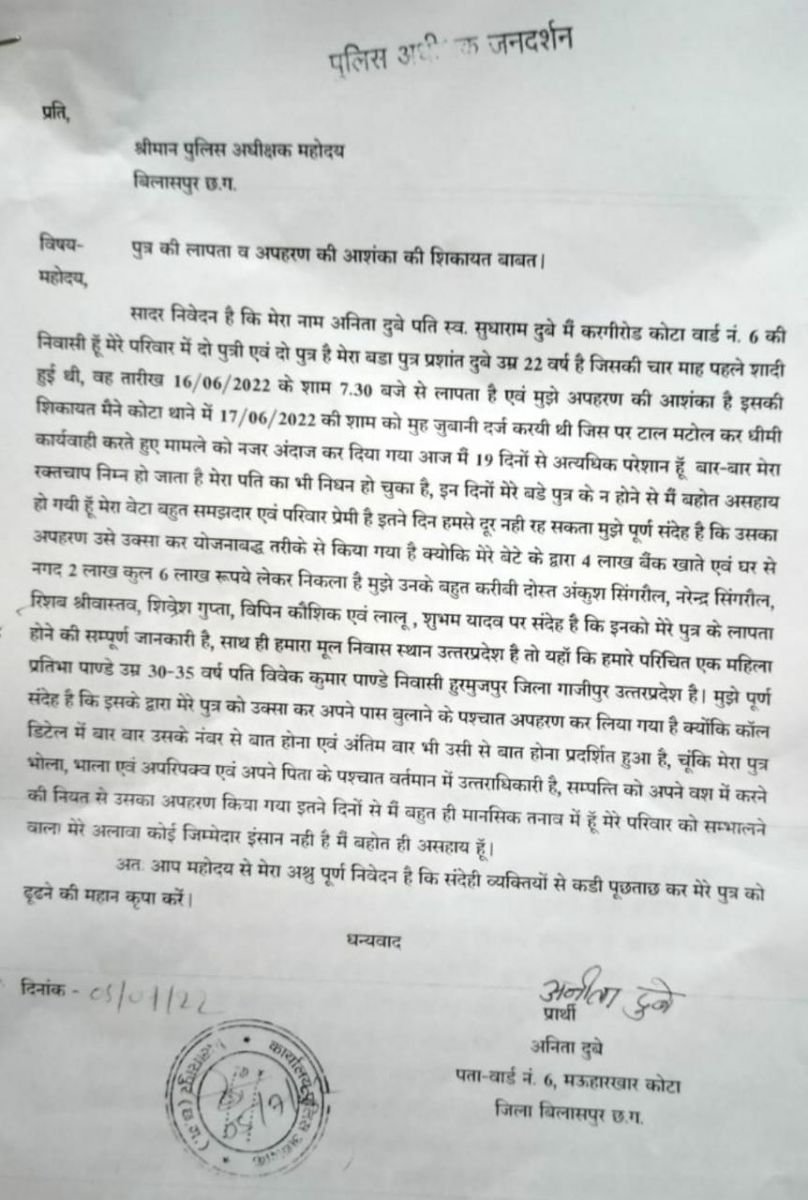 पुलिस अधीक्षक जनदर्शन
प्रति,
श्रीमान पुलिस अधीक्षक महोदय
बिलासपुर छ.ग.
विषय- पुत्र की लापता व अपहरण की आशंका की शिकायत बाबत।
महोदय,
सादर निवेदन है कि मेरा नाम अनिता दुबे पति स्व. सुधाराम दुबे मैं करगीरोड कोटा वार्ड नं. 6 की
निवासी हूँ मेरे परिवार में दो पुत्री एवं दो पुत्र है मेरा बडा पुत्र प्रशांत दुबे उम्र 22 वर्ष है जिसकी चार माह पहले शादी
हुई थी, वह तारीख 16/06/2022 के शाम 7.30 बजे से लापता है एवं मुझे अपहरण की आशंका है इसकी
शिकायत मैने कोटा थाने में 17/06/2022 की शाम को मुह जुबानी दर्ज करयी थी जिस पर टाल मटोल कर धीमी
कार्यवाही करते हुए मामले को नजर अंदाज कर दिया गया आज मैं 19 दिनों से अत्यधिक परेशान हूँ बार-बार मेरा
रक्तचाप निम्न हो जाता है मेरा पति का भी निधन हो चुका है, इन दिनों मेरे बडे पुत्र के न होने से मैं बहोत असहाय
हो गयी हूँ मेरा वेटा बहुत समझदार एवं परिवार प्रेमी है इतने दिन हमसे दूर नही रह सकता मुझे पूर्ण संदेह है कि उसका
अपहरण उसे उक्सा कर योजनाबद्ध तरीके से किया गया है क्योकि मेरे बेटे के द्वारा 4 लाख बैंक खाते एवं घर से
नगद 2 लाख कुल 6 लाख रूपये लेकर निकला है मुझे उनके बहुत करीबी दोस्त अंकुश सिंगरौल, नरेन्द्र सिंगरौल,
रिशब श्रीवास्तव, शिव्रेश गुप्ता, विपिन कौशिक एवं लालू , शुभम यादव पर संदेह है कि इनको मेरे पुत्र के लापता
होने की सम्पूर्ण जानकारी है, साथ ही हमारा मूल निवास स्थान उत्तरप्रदेश है तो यहाॅ कि हमारे परिचित एक महिला
प्रतिभा पाण्डे उम्र 30-35 वर्ष पति विवेक कुमार पाण्डे निवासी हुरमुजपुर जिला गाजीपुर उत्तरप्रदेश है। मुझे पूर्ण
संदेह है कि इसके द्वारा मेरे पुत्र को उक्सा कर अपने पास बुलाने के पश्चात अपहरण कर लिया गया है क्योंकि कॉल
डिटेल में बार बार उसके नंबर से बात होना एवं अंतिम बार भी उसी से बात होना प्रदर्शित हुआ है, चूंकि मेरा पुत्र
भोला, भाला एवं अपरिपक्व एवं अपने पिता के पश्चात वर्तमान में उत्तराधिकारी है, सम्पत्ति को अपने वश में करने
की नियत से उसका अपहरण किया गया इतने दिनों से मैं बहुत ही मानसिक तनाव में हूँ मेरे परिवार को सम्भालने
वाला मेरे अलावा कोई जिम्मेदार इंसान नही है मैं बहोत ही असहाय हूँ।
अत. आप महोदय से मेरा अश्रु पूर्ण निवेदन है कि संदेही व्यक्तियों से कडी पूछताछ कर मेरे पुत्र को
ढूढने की महान कृपा करें।
धन्यवाद
दिनांक - 05/07/22
अनीता दुबे
प्रार्थी
अनिता दुबे
पता-वार्ड नं. 6, मऊहारखार कोटा
जिला बिलासपुर छ.ग.
कार्यालय पुलिस अधीक्षक
बिलासपुर (छ.ग.)